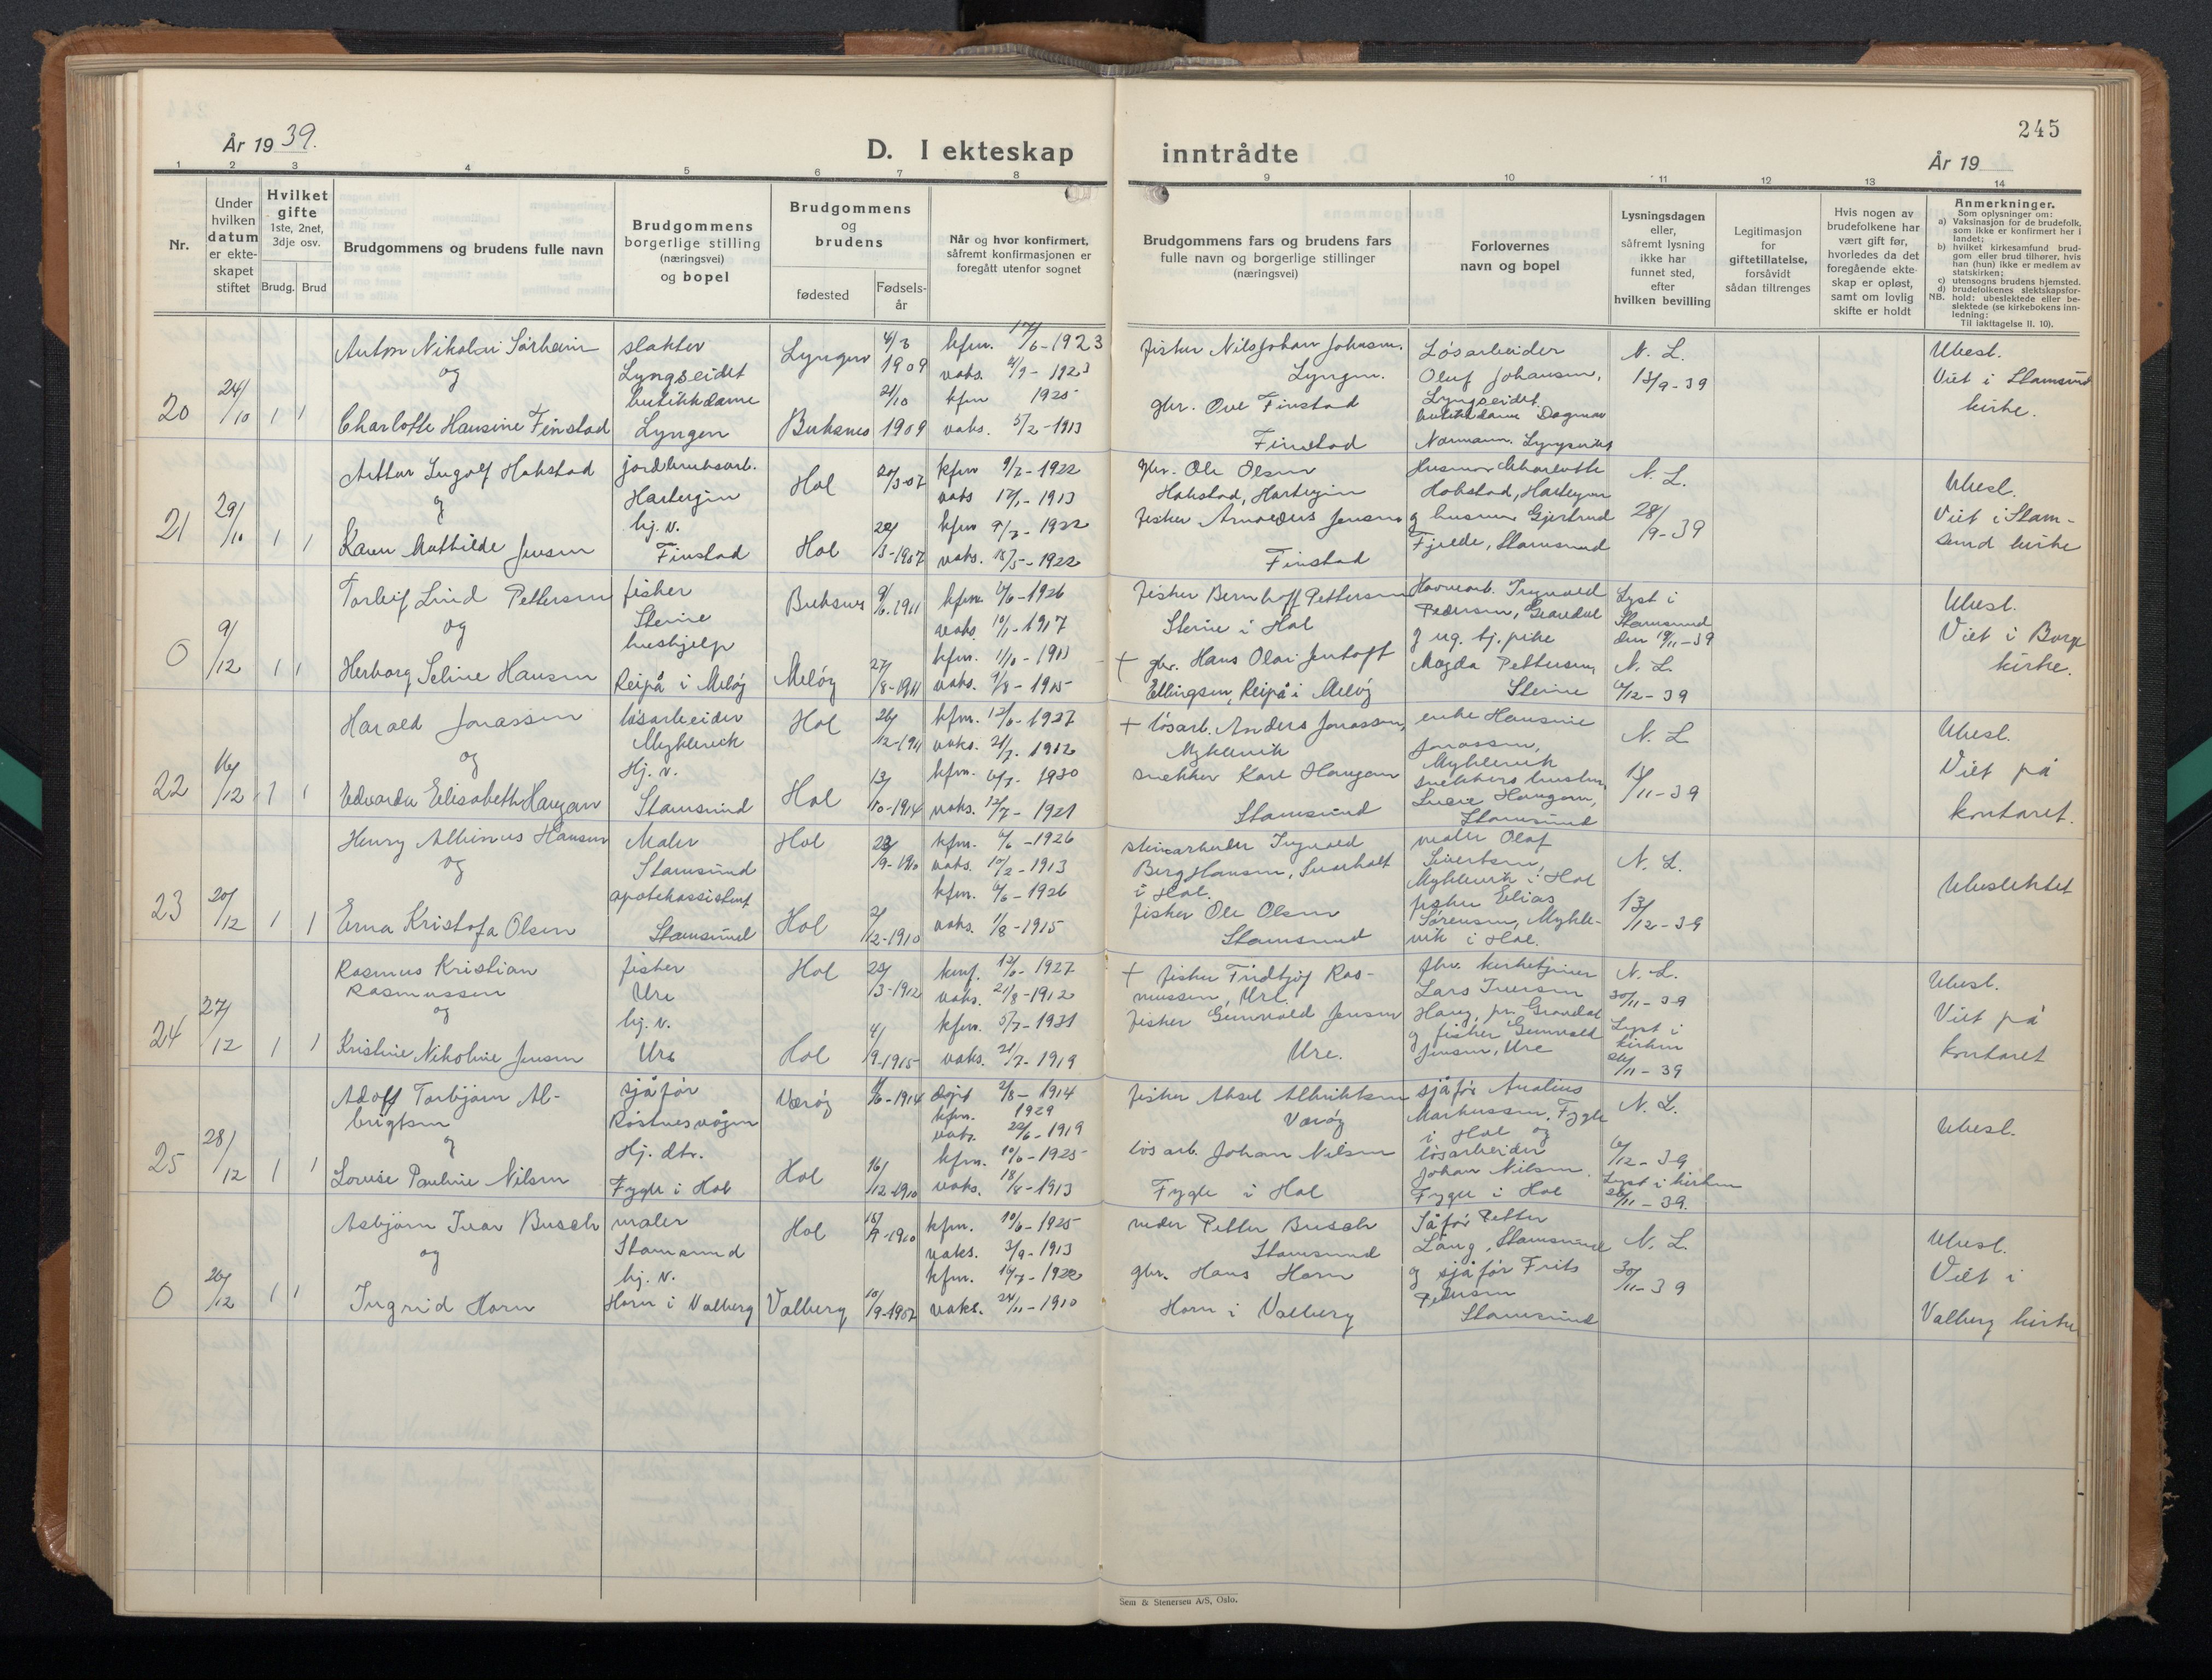 245
År 1939.
D. I ekteskap inntrådte
År 19
1 2 3 4 5 6 7 8 9 10 11 12 13 14
Nr.
Under
hvilken
datum
er ekte-
skapet
stiftet
Hvilket
gifte
1ste, 2net,
3dje osv.
Brudg. Brud
Brudgommens og brudens fulle navn
Brudgommens
borgerlige stilling
(næringsvei)
og bopel
Brudgommens
og
brudens
fødested
Fødsels-
år
Når og hvor konfirmert,
såfremt konfirmasjonen er
foregått utenfor sognet
Brudgommens fars og brudens fars
fulle navn og borgerlige stillinger
(næringsvei)
Forlovernes
navn og bopel
Lysningsdagen
eller,
såfremt lysning
ikke har
funnet sted,
efter
hvilken bevilling
Legitimasjon
for
giftetillatelse,
forsåvidt
sådan tiltrenges
Hvis nogen av
brudefolkene har
vært gift før,
hvorledes da det
foregående ekte-
skap er opløst,
samt om lovlig
skifte er holdt
Anmerkninger.
Som oplysninger om:
a) Vaksinasjon for de brudefolk,
som ikke er konfirmert her i
landet;
b) hvilket kirkesamfund brud-
gom eller brud tilhører, hvis
han (hun) ikke er medlem av
statskirken;
c) utensogns brudens hjemsted.
d) brudefolkenes slektskapsfor-
NB. hold: ubeslektede eller be-
slektede (se kirkebokens inn-
ledning:
Til iakttagelse II. 10).
20
24/10
1 1
Anton Nikolai Sørheim
og
Charlotte Hansine Finstad
slakter
Lyngseidet
butikkdame
Lyngen
Lyngen
4/3
1909
Buksnes
21/10
1909
kfm. 17/6-1923
vaks. 4/9-1923
kfm 1925
vaks. 5/2-1913
fisker Nils Johan Johnsen.
Lyngen.
gbr. Ove Finstad
Finstad
Løsarbeider
Oluf Johansen,
Lyngseidet
butikkdame Dagmar
Normann, Lyngseidet
N. L.
13/9-39
Ubesl.
Viet i Stamsund
kirke.
21
29/10
1 1
Arthur Ingolf Hokstad
og
Karen Mathilde Jensen
jordbruksarb.
Hartvigen
hj. v.
Finstad
Hol
20/3-07
Hol
22/3-1907
kfm 9/7-1922
vaks 12/1-1913
kfm 9/7-1922
vaks. 18/5-1922
gbr. Ole Olsen
Hokstad, Hartvigen
fisker Arnoldus Jensen
Finstad
Husmor Charlotte
Hokstad, Hartvigen
og husmor Gjertrud
Fjelde, Stamsund
N. L.
28/9-39
Ubesl.
Viet i Stam-
sund kirke
0
9/12
1 1
Torleif Lind Pettersen
og
Herborg Seline Hansen
fisker
Steine
hushjelp
Reipå i Meløy
Buksnes
9/6-1911
Meløy
27/8-1911
kfm. 6/6-1926
vaks. 10/1-1917
kfm.
vaks. 9/8-1915
fisker Bernhoff Pettersen
Steine i Hol
+ gbr. Hans Olai Jentoft
Ellingsen, Reipå i Meløy
Havnearb. Ingvald
Pedersen, Gravdal
og ug. tj. pike
Magda Pettersen
Steine
Lyst i
Stamsund
den 19/11-39
N. L.
6/12-39
Ubesl.
Viet i Borge
kirke.
22
16/12
1 1
Harald Jonassen
og
Edvarda Elisabeth Haugan
løsarbeider
Myklevik
Hj. v.
Stamsund
Hol
26/12-1911
Hol
13/10-1914
kfm. 12/6-1927
vaks. 21/7-1912
kfm. 6/7-1930
vaks. 12/7-1921
+ løsarb. Anders Jonassen,
Myklevik
snekker Karl Haugan
Stamsund
enke Hansine
Jonassen,
Myklevik
snekkers hustru
Haugan,
Stamsund
N. L
13/11-39
Ubesl.
Viet på
kontoret.
23
20/12
1 1
Henry Albinus Hansen
og
Erna Kristofa Olsen
Maler
Stamsund
apotekassistent
Stamsund
Hol
23/9-1910
Hol
2/12-1910
kfm. 6/6-1926
vaks. 10/2-1913
kfm. 6/6-1926
vaks. 1/8-1915
steinarbeider Ingvald
Berg Hansen, Sundholt
i Hol.
fisker Ole Olsen
Stamsund
maler Olaf
Sivertsen,
Myklevik i Hol
fisker Elias
Sørensen, Mykle-
vik i Hol.
N. L.
13/12-39
Ubeslektet
24
27/12
1 1
Rasmus Kristian
Rasmussen
og
Kristine Nikoline Jensen
fisker
Ure
hj. v.
Ure
Hol
23/3-1912
Hol
4/9-1915
konf. 12/6-1927
vaks. 21/8-1912
kfm. 5/7-1931
vaks. 21/7-1919
+ fisker Fridtjof Ras-
mussen, Ure.
fisker Gunvald Jensen
Ure.
fhv. kirketjener
Lars Iversen
Haug, pr. Gravdal
og fisker Gunvald
Jensen, Ure
N. L.
30/11-39
Lyst i
kirken
26/11-39
Ubesl.
Viet på
kontoret
25
28/12
1 1
Adolf Torbjørn Al-
brigtsen
og
Lovise Pauline Nilsen
sjåfør
Røstnesvågen
Hj. dtr.
Fygle i Hol
Værøy
4/6-1914
Hol
16/12-1910
døpt 2/8-1914
kfm. 1929
vaks. 22/6-1919
kfm. 10/6-1925
vaks. 18/8-1913
fisker Aksel Albriktsen
Værøy
løsarb. Johan Nilsen
Fygle i Hol
sjåfør Analius
Markussen, Fygle
i Hol og
løsarbeider
Johan Nilsen.
Fygle i Hol
N. L.
6/12-39
Lyst i kirken
26/11-39.
Ubesl.
0
26/12
1 1
Asbjørn Ivar Busch
og
Ingrid Horn
maler
Stamsund
hj. v.
Horn i Valberg
Hol
15/9-1910
Valberg
10/9-1907
kfm. 10/6-1925
vaks. 3/9-1913
kfm. 16/7-1922
vaks. 24/11-1910
reder Petter Busch
Stamsund
gbr. Hans Horn
Horn i Valberg
Sjåfør Petter
Lång, Stamsund
og sjåfør Frits
Pedersen
Stamsund
N. L.
30/11-39
Ubesl.
Viet i
Valberg kirke
Sem & Stenersen A/S, Oslo.